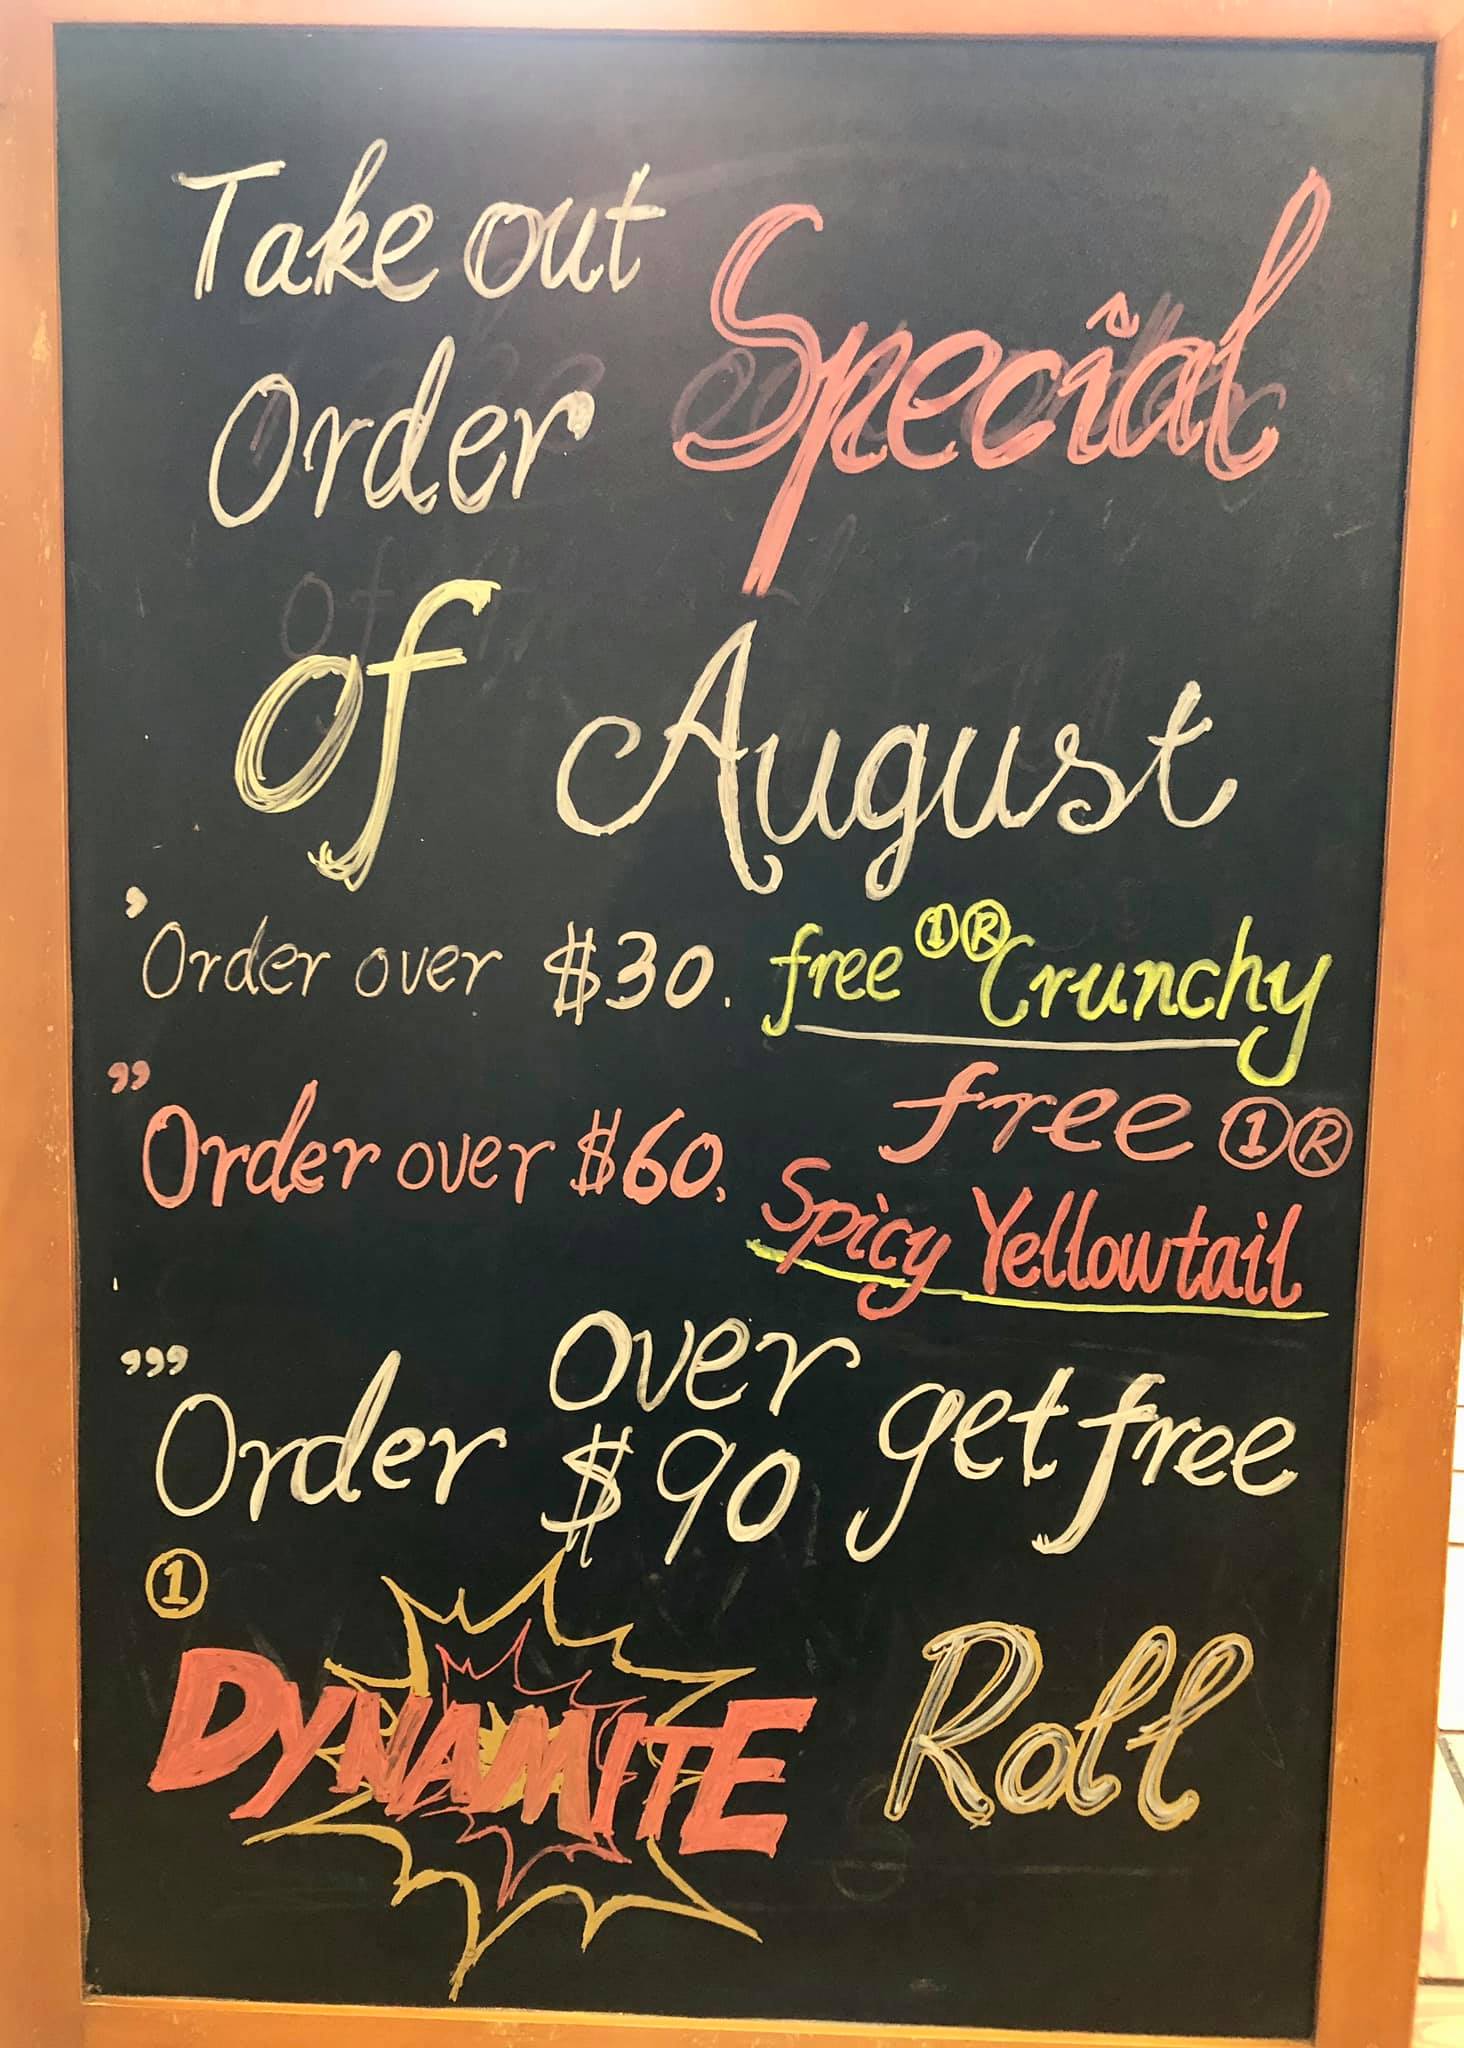 Take out
Order Special
of August
’Order over $30. free ①Ⓡ Crunchy
”Order over $60, free ①Ⓡ
Spicy Yellowtail
’’’Order over $90 get free
①
DYNAMITE Roll